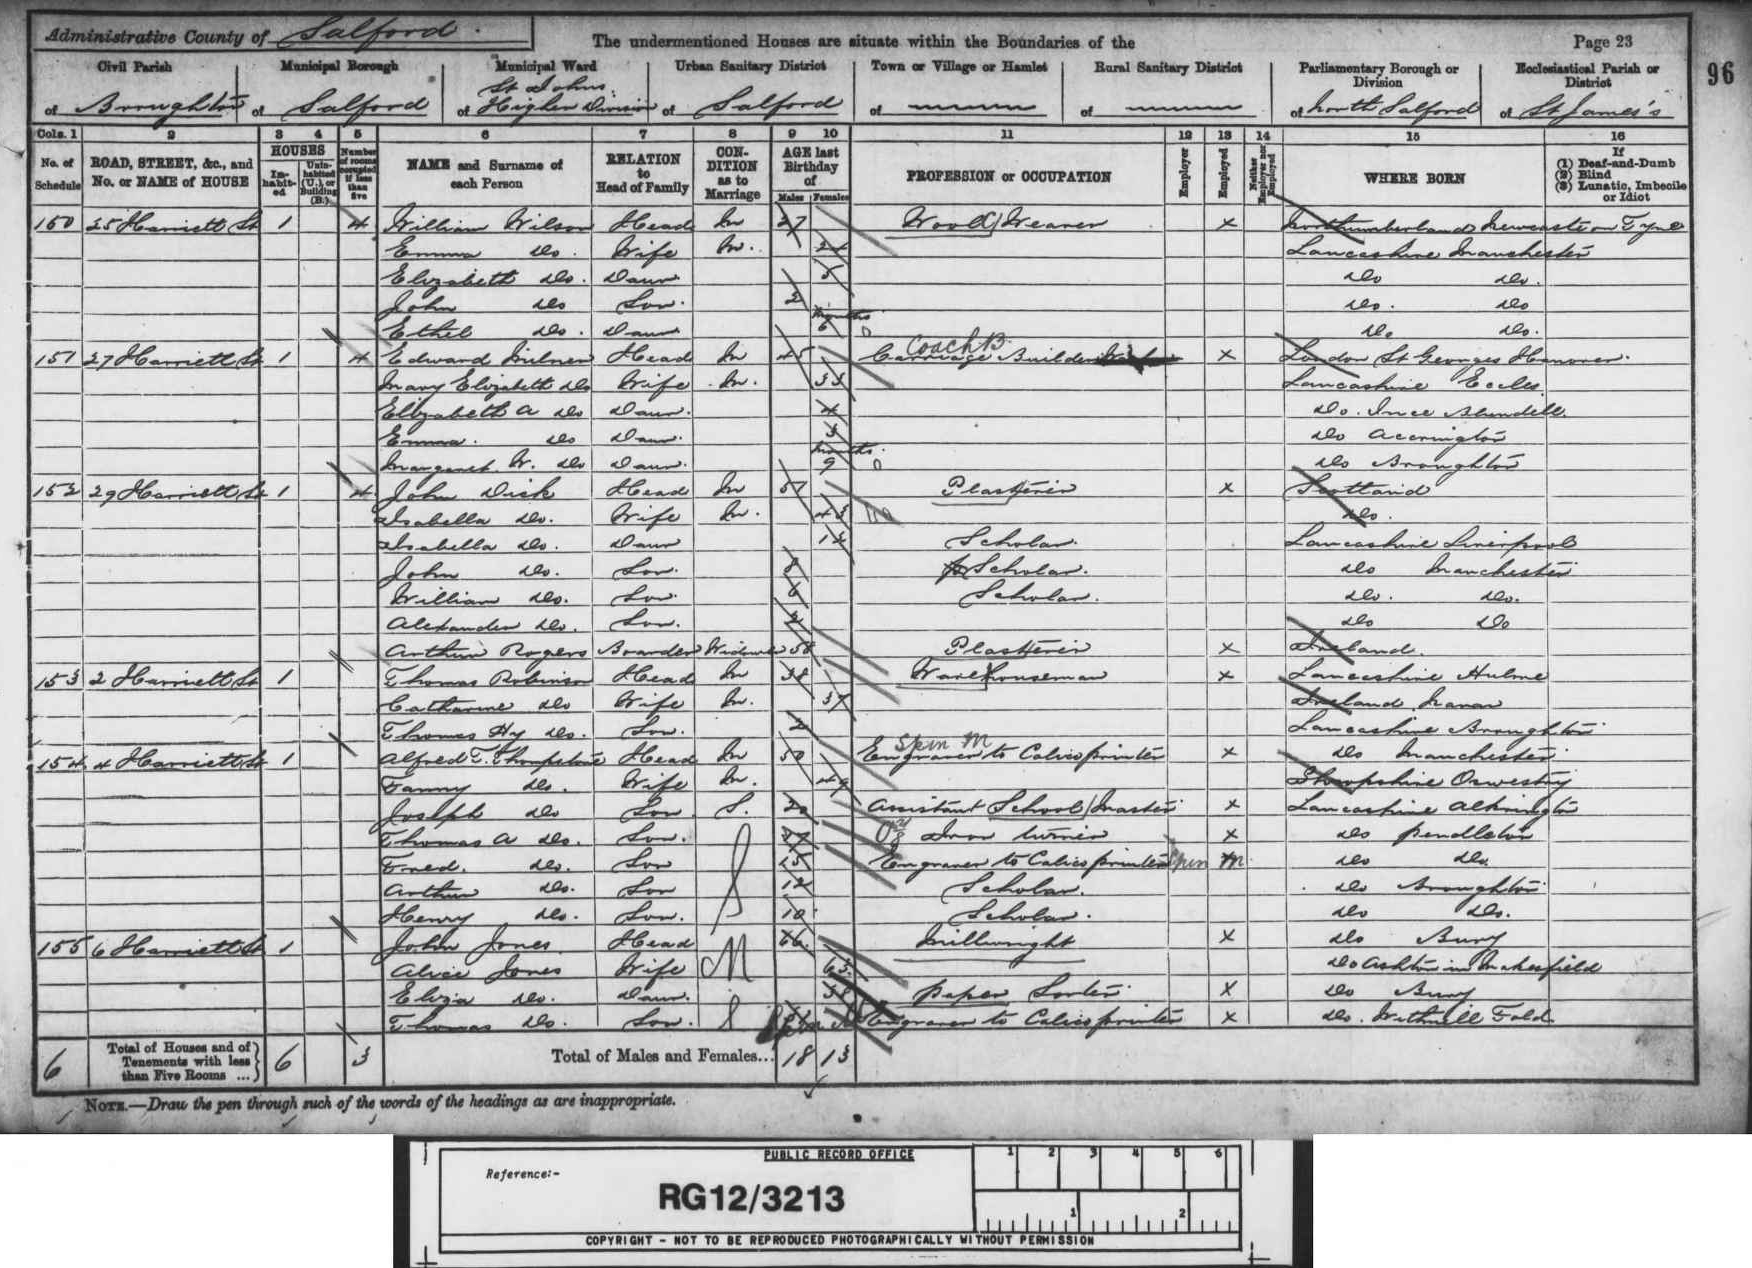 Administrative County of Salford. The undermentioned Houses are situate within the Boundaries of the Page 23
96
Civil Parish Municipal Borough Municipal Ward Urban Sanitary District Town or Village or Hamlet Rural Sanitary District Parliamentary Borough or Division Ecclesiastical Parish or District
of Broughton of Salford of St Johns. Higher Division of Salford of of of North Salford of St James's
Cols. 1 2 3 4 5 6 7 8 9 10 11 12 13 14 15 16
No. of Schedule ROAD, STREET, &c., and No. or NAME of HOUSE HOUSES Inhabited Uninhabited (U.), or Building (B.) Number of rooms occupied if less than five NAME and Surname of each Person RELATION to Head of Family CONDITION as to Marriage AGE last Birthday of Males Females PROFESSION or OCCUPATION Employer Employed Neither Employer nor Employed WHERE BORN If (1) Deaf-and-Dumb (2) Blind (3) Lunatic, Imbecile or Idiot
150 25 Harriett St 1 4 William Wilson Head M 27 Wool Weaver x Northumberland Newcastle on Tyne
Emma Do. Wife M. 24 Lancashire Manchester
Elizabeth Do. Daur 5 Do Do.
John Do Son. 2 Do. Do
Ethel Do. Daur months 6 Do Do.
151 27 Harriett St 1 4 Edward Milner Head M 45 Coach B. Carriage Builder x London St Georges Hanover.
Mary Elizabeth Do Wife M. 33 Lancashire Eccles
Elizabeth A Do Daur. 4 Do. Ince Blundell
Emma. Do Daur. 3 Do Accrington
Margaret W. Do Daur. months. 9 Do Broughton
152 29 Harriett St 1 4 John Dick Head M 51 Plasterer x Scotland
Isabella Do. Wife M. 43 Do.
Isabella Do. Daur 14 Scholar. Lancashire Liverpool
John Do. Son. 8 Scholar. Do Manchester
William Do. Son. 6 Scholar. Do. Do.
Alexander Do. Son. 2 Do Do
Arthur Rogers Boarder Widower 58 Plasterer x Ireland.
153 2 Harriett St 1 Thomas Robinson Head M 38 Warehouseman x Lancashire Hulme
Catharine Do Wife M. 37 Ireland
Thomas Hy Do. Son. 2 Lancashire Broughton
154 4 Harriett St 1 Alfred T. Thompstone Head M 50 Spin M Engraver to Calico printer x Do Manchester
Fanny Do. Wife M. 49 Shropshire Oswestry
Joseph Do Son S. Assistant School Master x Lancashire Alkrington
Thomas A Do. Son. Iron turner x Do Pendleton
Fred. Do. Son 15 Engraver to Calico printer Spin M. Do Do.
Arthur Do. Son 12 Scholar. Do Broughton
Henry Do. Son. 10 Scholar. Do Do.
155 6 Harriett St 1 John Jones Head M 66 Millwright x Do Bury
Alice Jones Wife 65 Do Ashton in Makerfield
Eliza Do. Daur. S 38 Paper Sorter x Do Bury
Thomas Do. Son. Engraver to Calico printer x Do. Withnell Fold
6 Total of Houses and of Tenements with less than Five Rooms ... 6 3 Total of Males and Females... 18 13
NOTE.—Draw the pen through such of the words of the headings as are inappropriate.
PUBLIC RECORD OFFICE
1 2 3 4 5 6
Reference:-
RG12/3213
1 2
COPYRIGHT - NOT TO BE REPRODUCED PHOTOGRAPHICALLY WITHOUT PERMISSION